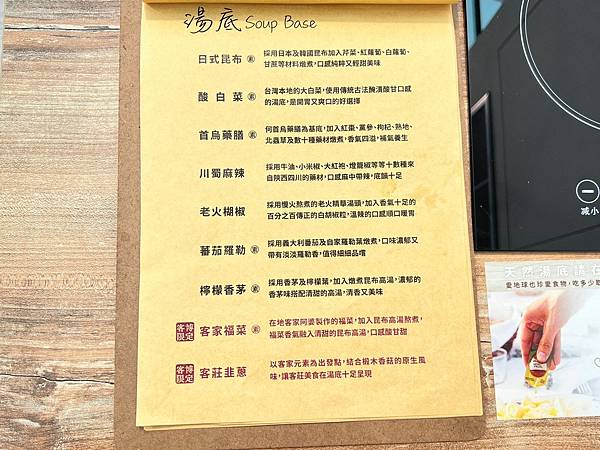 湯底 Soup Base
日式昆布 素
採用日本及韓國昆布加入芹菜、紅蘿蔔、白蘿蔔、
甘蔗等材料燉煮，口感純粹又輕甜美味
酸白菜 素
台灣本地的大白菜，使用傳統古法醃漬酸甘口感
的湯底，是開胃又爽口的好選擇
首烏藥膳 素
何首烏藥膳為基底，加入紅棗、黨參、枸杞、熟地、
北蟲草及數十種藥材燉煮，香氣四溢，補氣養生
川蜀麻辣
採用牛油、小米椒、大紅袍、燈籠椒等等十數種來
自陝西四川的藥材，口感麻中帶辣，底韻十足
老火椒椒
採用慢火熬煮的老火精華湯頭，加入香氣十足的
百分之百傳正的白胡椒粒，溫辣的口感順口暖胃
蕃茄羅勒 素
採用義大利番茄及自家羅勒葉燉煮，口味濃郁又
帶有淡淡羅勒香，值得細細品嚐
檸檬香茅 素
採用香茅及檸檬葉，加入燉煮昆布高湯，濃郁的
香茅味搭配清甜的高湯，清香又美味
客博限定 客家福菜 素
在地客家阿婆製作的福菜，加入昆布高湯熬煮，
福菜香氣融入清甜的昆布高湯，口感酸甘甜
客博限定 客莊韭蔥
以客家元素為出發點，結合椴木香菇的原生風
味，讓客莊美食在湯底十足呈現
減小
天然湯底請在
愛地球也珍愛食物，吃多少取